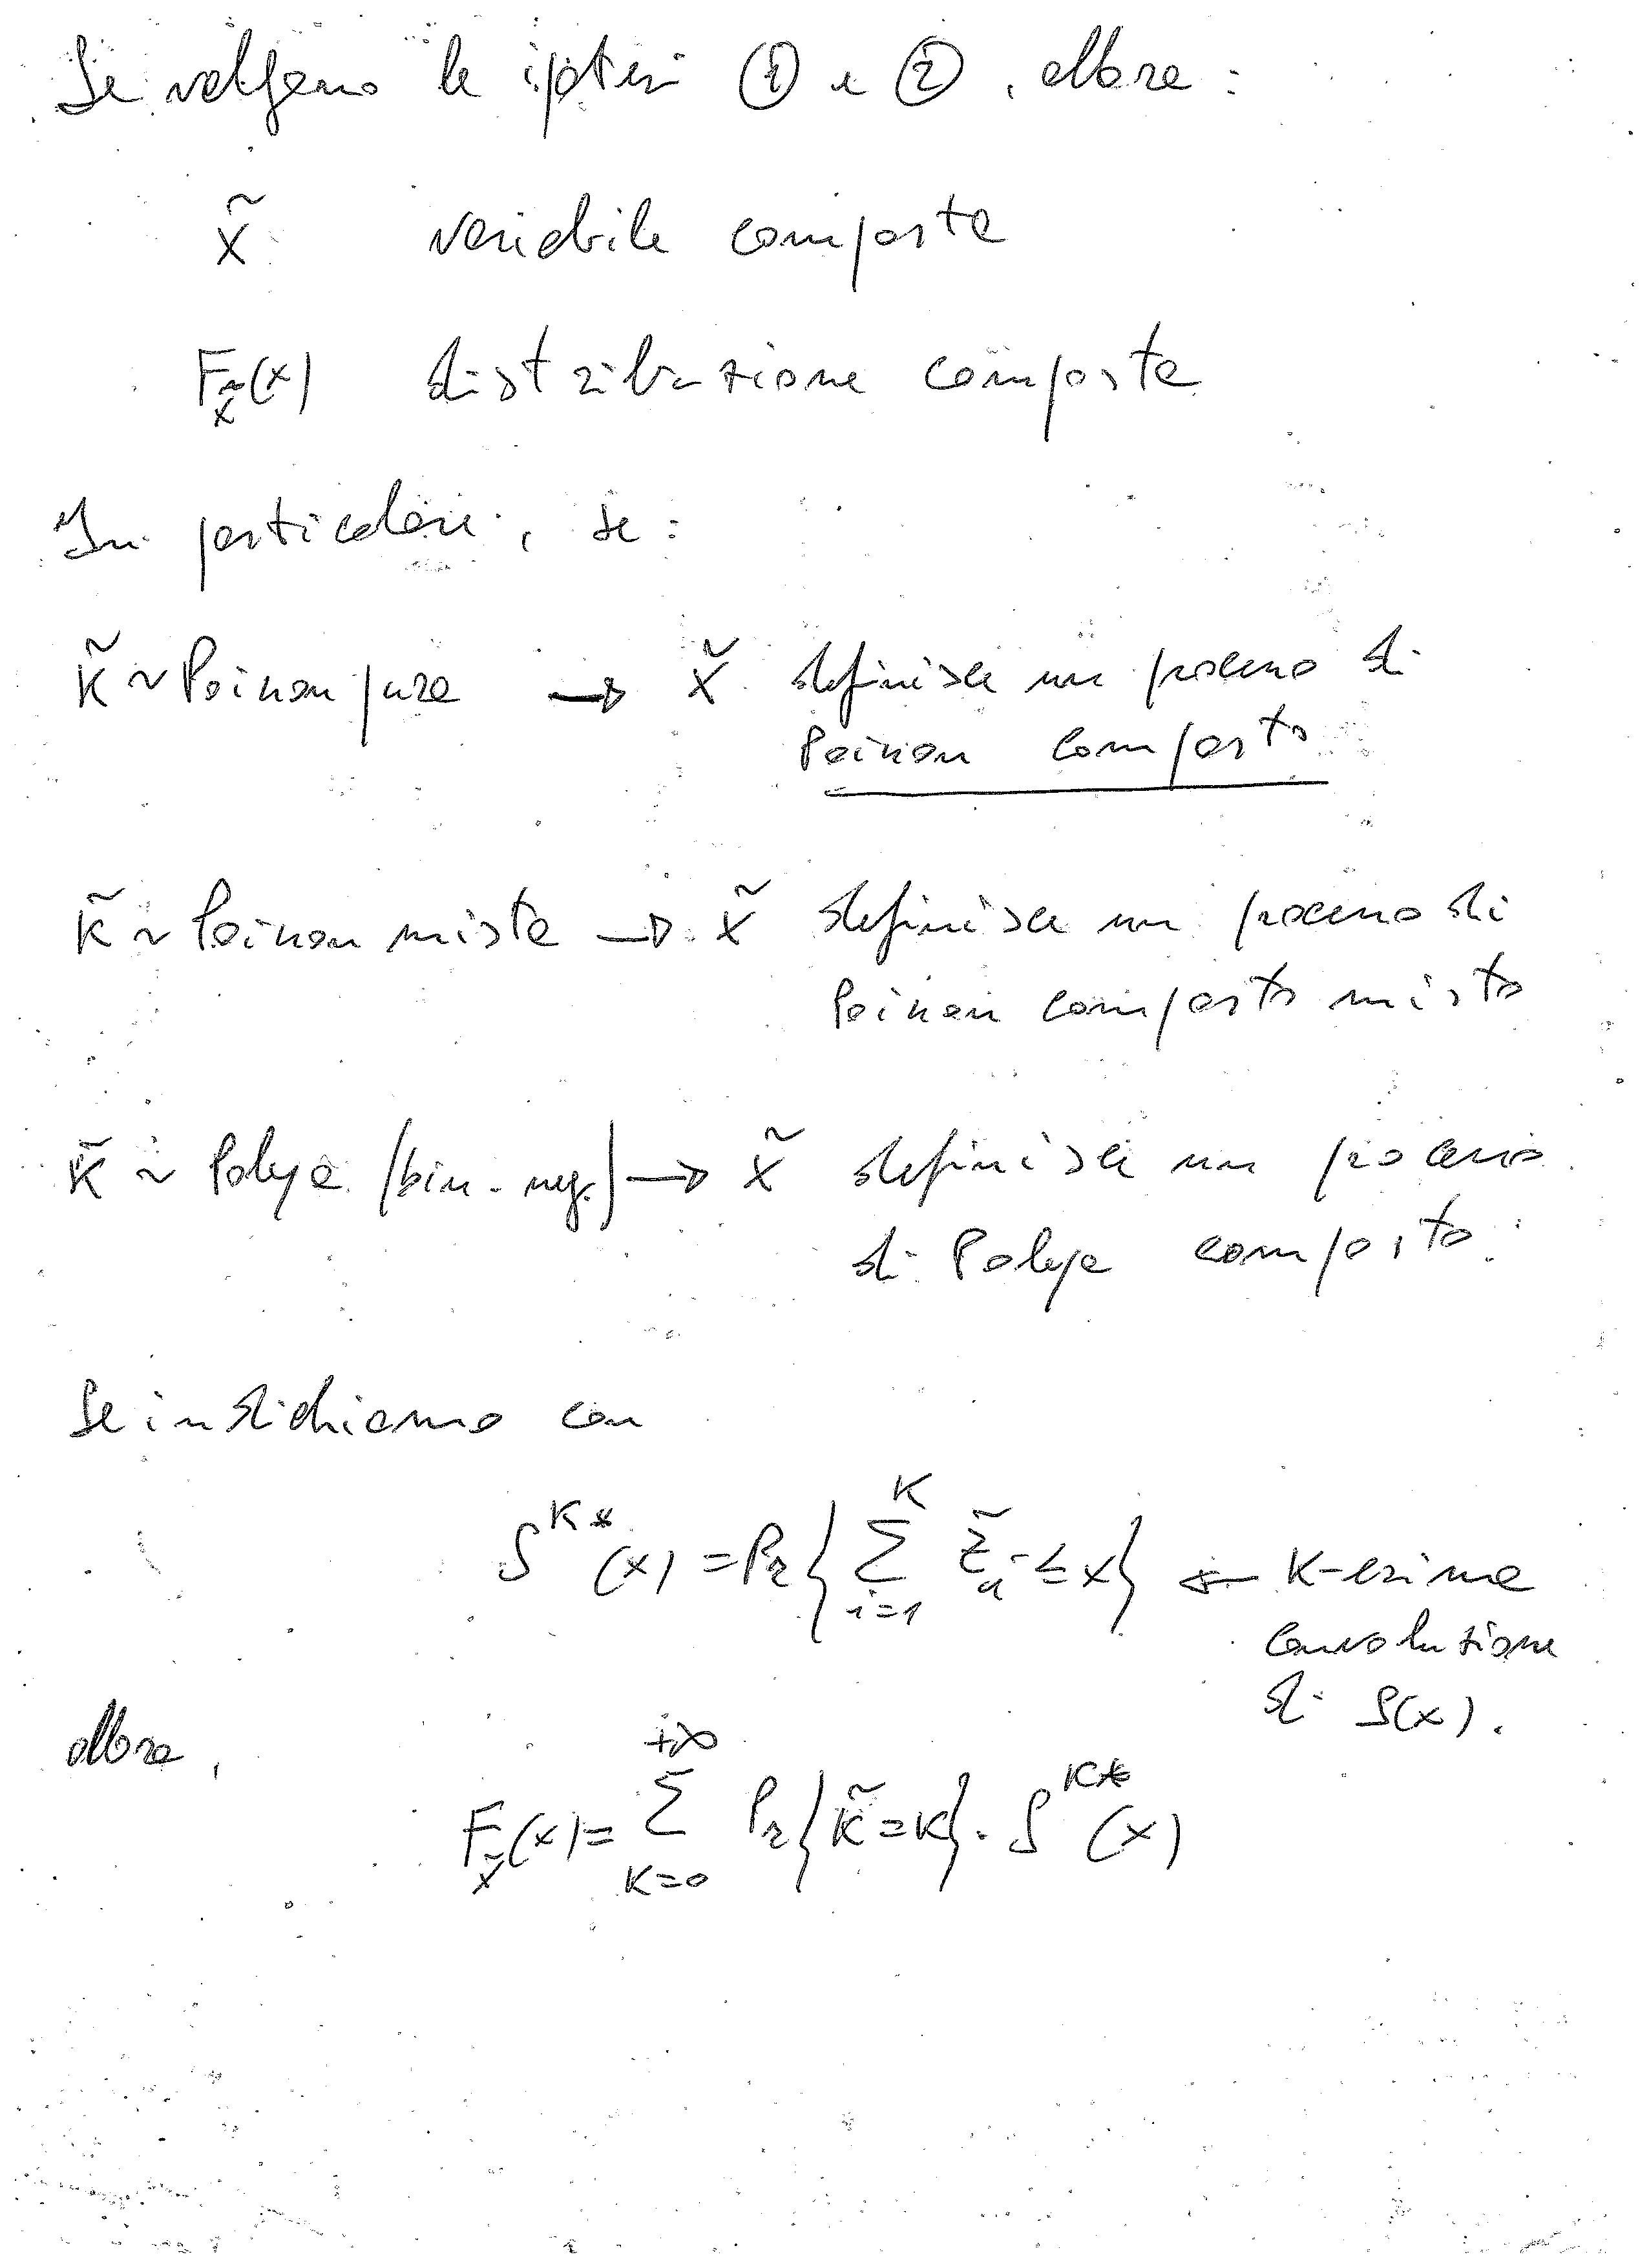 Se valgono le ipotesi ① e ②, allora:
X̃ variabile composta
F_X̃(x) distribuzione composta
In particolare, se:
K̃ ~ Poisson pura → X̃ definisce un processo di
Poisson composto
K̃ ~ Poisson mista → X̃ definisce un processo di
Poisson composto misto
K̃ ~ Polya (bin. neg.) → X̃ definisce un processo
di Polya composto.
Se indichiamo con
S^{K*}(x) = Pr{ Σ_{i=1}^{K} Z̃_i ≤ x } ← K-esima
convoluzione
di S(x).
allora,
F_X̃(x) = Σ_{K=0}^{+∞} Pr{K̃=K} · S^{K*}(x)